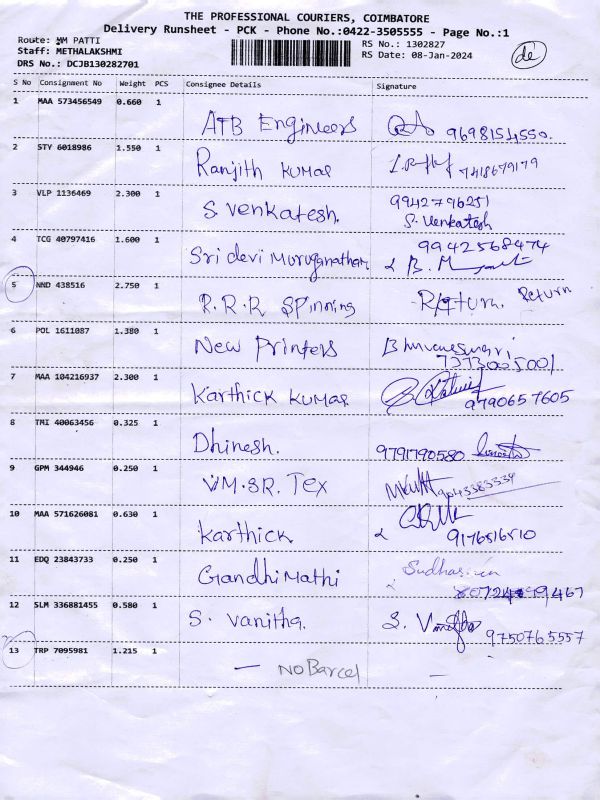 THE PROFESSIONAL COURIERS, COIMBATORE
Delivery Runsheet - PCK - Phone No.:0422-3505555 - Page No.:1
Route: MM PATTI
RS No.: 1302827
Staff: METHALAKSHMI
RS Date: 08-Jan-2024
DRS No.: DCJB130282701
S No Consignment No Weight PCS Consignee Details Signature
1 MAA 573456549 0.660 1 ATB Engineers 9698154550.
2 STY 6018986 1.550 1 Ranjith Kumar 7418679179
3 VLP 1136469 2.300 1 S. Venkatesh. 9942796251
S. Venkatesh
4 TCG 40797416 1.600 1 Sri devi Muruganatham 9942568474
5 NND 438516 2.750 1 R.R.R Spinning Return. Return
6 POL 1611087 1.380 1 New Printers Bhuvaneswari
7373005001
7 MAA 104216937 2.300 1 Karthick Kumar 9790657605
8 TMI 40063456 0.325 1 Dhinesh. 9791790580
9 GPM 344946 0.250 1 VM.SR. Tex 9043383339
10 MAA 571626081 0.630 1 Karthick 9176516510
11 EDQ 23843733 0.250 1 Gandhi Mathi
12 SLM 336881455 0.580 1 S. Vanitha. S. Vanitha
9750765557
13 TRP 7095981 1.215 1 — No Barcel —